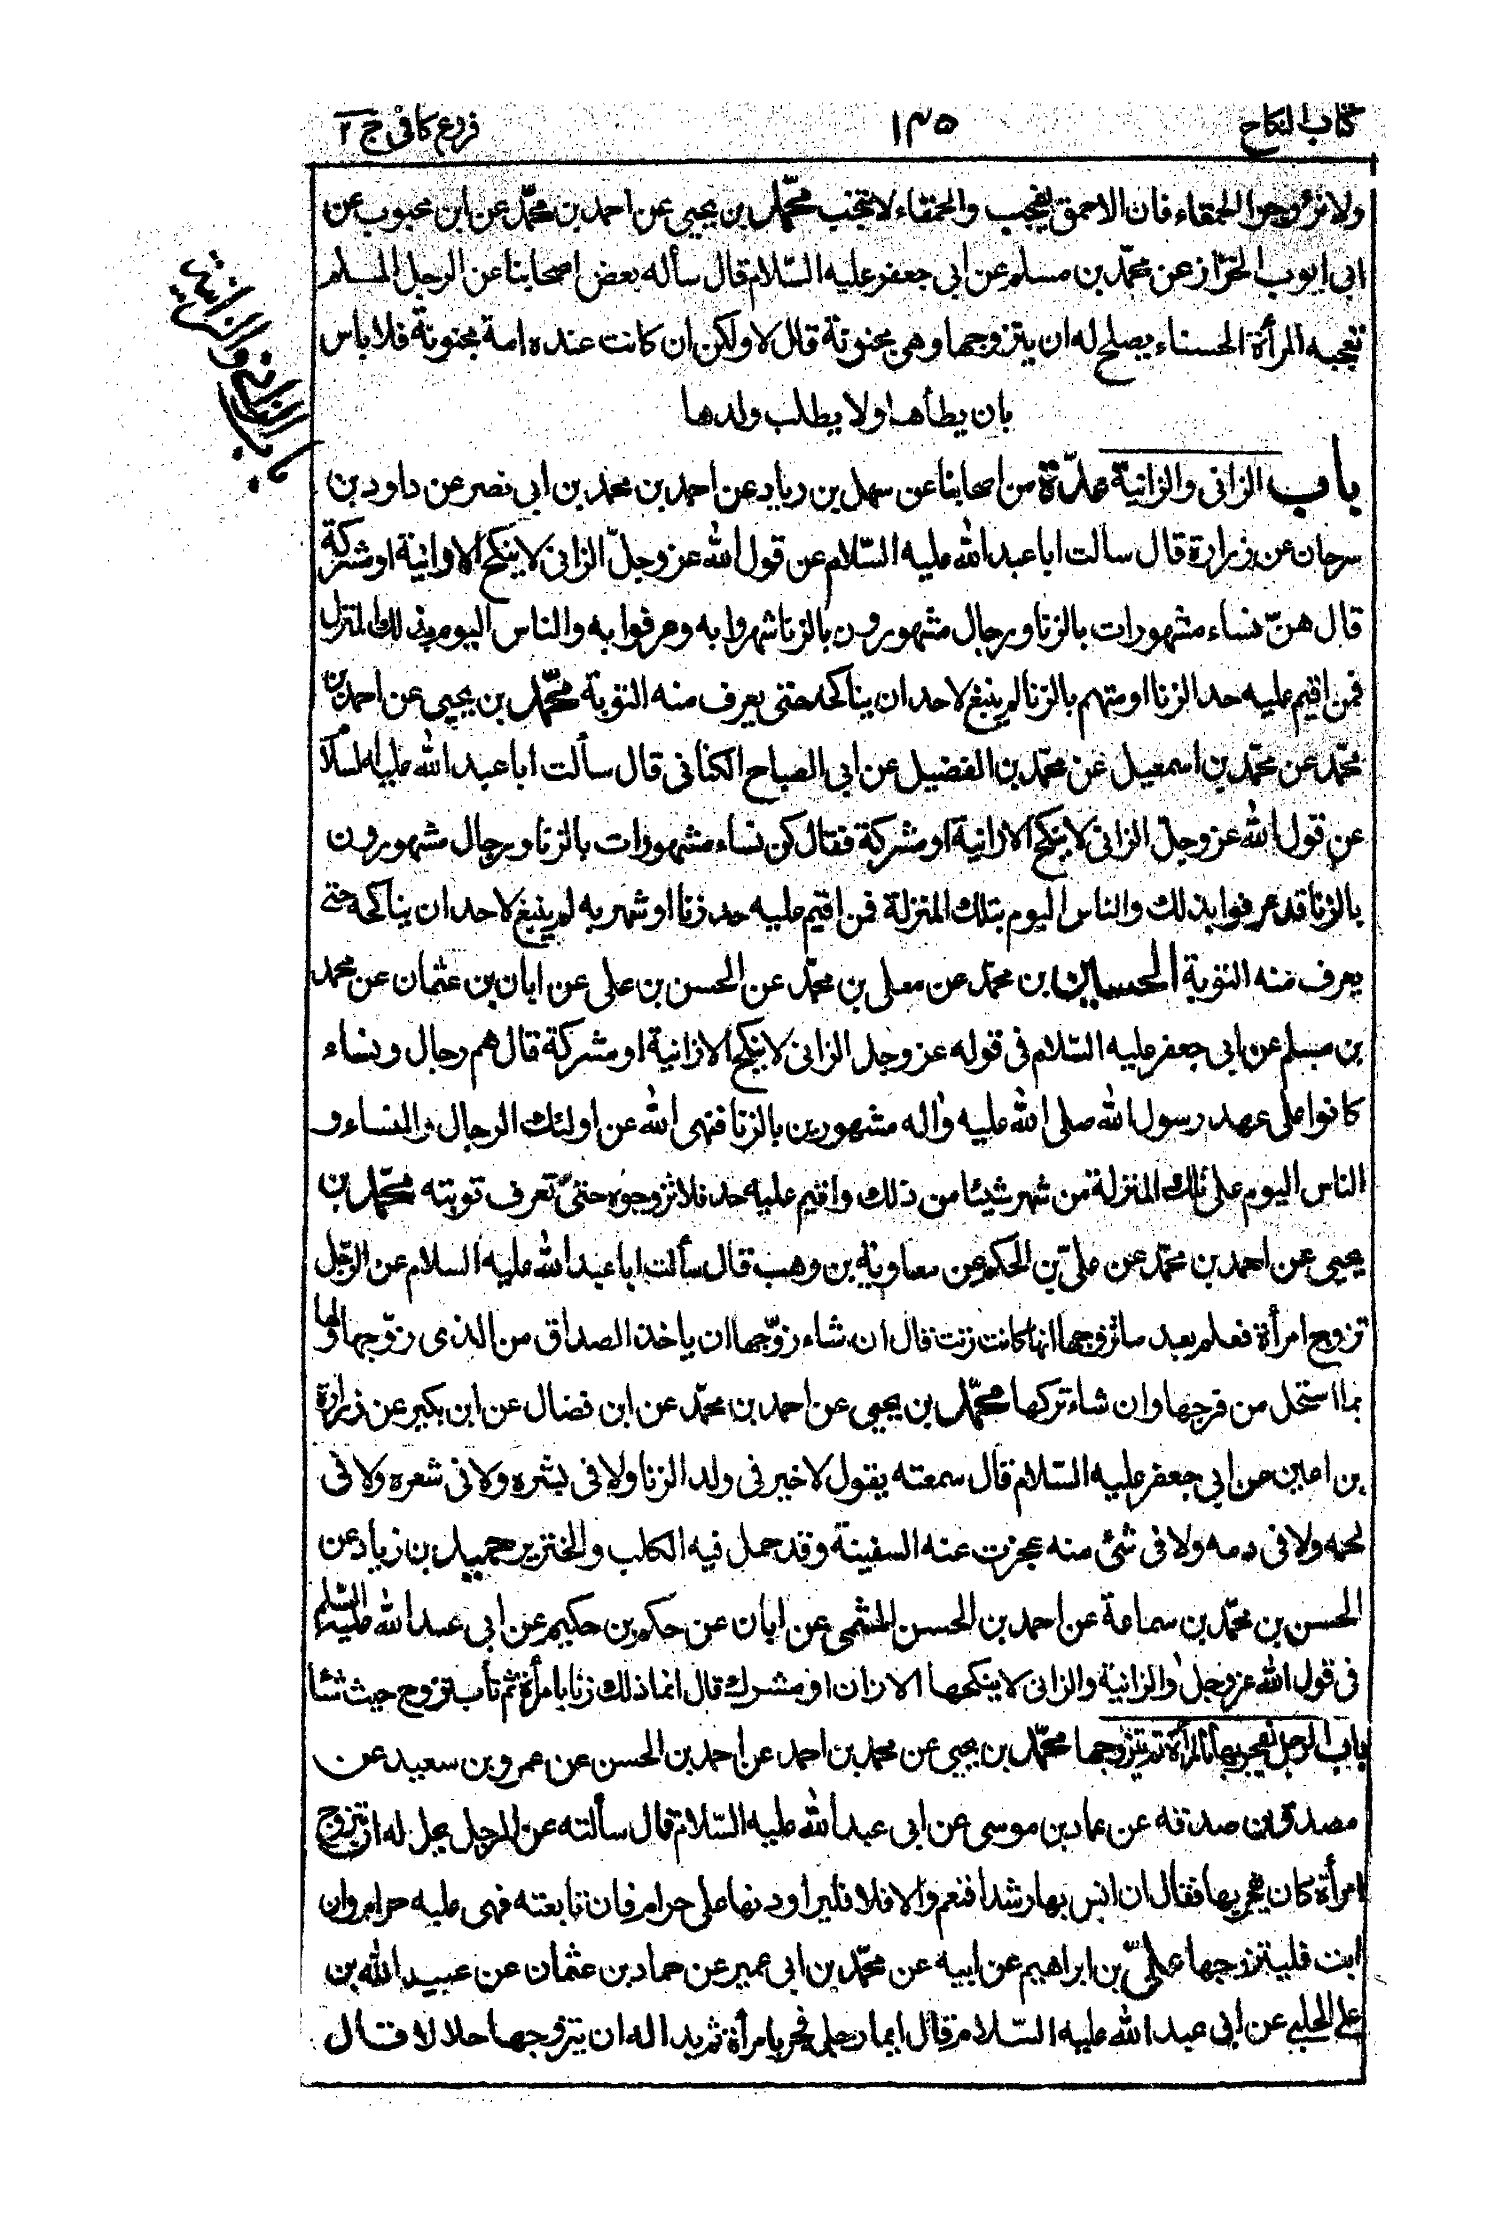 كتاب النكاح
١٣٥
فروع كافى ج ٢
ولا تزوجوا الحمقاء فان الاحمق ينجب والحمقاء لا تنجب محمّد بن يحيى عن احمد بن محمّد عن ابن محبوب عن
ابى ايوب الخزاز عن محمّد بن مسلم عن ابى جعفر عليه السّلام قال سأله بعض اصحابنا عن الرجل المسلم
تعجبه المرأة الحسناء يصلح له ان يتزوجها وهى مجنونة قال لا ولكن ان كانت عنده امة مجنونة فلا باس
بان يطأها ولا يطلب ولدها
باب الزانى والزانية
باب الزانى والزانية عدّة من اصحابنا عن سهل بن زياد عن احمد بن محمد بن ابى نصر عن داود بن
سرحان عن زرارة قال سالت ابا عبد الله عليه السّلام عن قول الله عز وجلّ الزانى لا ينكح الا زانية او مشركة
قال هنّ نساء مشهورات بالزنا ورجال مشهورون بالزنا شهروا به وعرفوا به والناس اليوم بذلك المنزل
فمن اقيم عليه حد الزنا او متهم بالزنا لم ينبغ لاحد ان يناكحه حتى يعرف منه التوبة محمّد بن يحيى عن احمد بن
محمّد عن محمّد بن اسمعيل عن محمّد بن الفضيل عن ابى الصباح الكنانى قال سألت ابا عبد الله عليه السلام
عن قول الله عز وجلّ الزانى لا ينكح الا زانية او مشركة فقال كن نساء مشهورات بالزنا ورجال مشهورون
بالزنا قد عرفوا بذلك والناس اليوم بتلك المنزلة فمن اقيم عليه حد زنا او شهر به لم ينبغ لاحد ان يناكحه حتى
يعرف منه التوبة الحسين بن محمّد عن معلى بن محمّد عن الحسن بن على عن ابان بن عثمان عن محمد
بن مسلم عن ابى جعفر عليه السّلام فى قوله عز وجل الزانى لا ينكح الا زانية او مشركة قال هم رجال ونساء
كانوا على عهد رسول الله صلى الله عليه واله مشهورين بالزنا فنهى الله عن اولئك الرجال والنساء و
الناس اليوم على تلك المنزلة من شهر شيئا من ذلك واقيم عليه حد فلا تزوجوه حتى تعرف توبته محمّد بن
يحيى عن احمد بن محمّد عن علىّ بن الحكم عن معاوية بن وهب قال سألت ابا عبد الله عليه السلام عن الرّجل
تزوج امرأة فعلم بعد ما تزوجها انها كانت زنت قال ان شاء زوّجها ان ياخذ الصداق من الذى زوّجها ولها
بما استحل من فرجها وان شاء تركها محمّد بن يحيى عن احمد بن محمّد عن ابن فضال عن ابن بكير عن زرارة
بن اعين عن ابى جعفر عليه السّلام قال سمعته يقول لا خير فى ولد الزنا ولا فى بشره ولا فى شعره ولا فى
لحمه ولا فى دمه ولا فى شئ منه عجزت عنه السفينة وقد حمل فيه الكلب والخنزير حميد بن زياد عن
الحسن بن محمّد بن سماعة عن احمد بن الحسن الميثمى عن ابان عن حكم بن حكيم عن ابى عبد الله عليه السّلم
فى قول الله عز وجل والزانية والزانى لا ينكحها الا زان او مشرك قال انما ذلك زنا بامرأة ثم تاب تزوج حيث شآ
باب الرجل يفجر بالمرأة ثم يتزوجها محمّد بن يحيى عن محمد بن احمد عن احمد بن الحسن عن عمرو بن سعيد عن
مصدق بن صدقه عن عمار بن موسى عن ابى عبد الله عليه السّلام قال سألته عن الرجل يحل له ان يتزوج
امرأة كان يفجر بها فقال ان انس بها رشدا فنعم والا فلا فليراودنها على حرام فان تابعته فهى عليه حرام وان
ابت فليتزوجها علىّ بن ابراهيم عن ابيه عن محمّد بن ابى عمير عن حماد بن عثمان عن عبيد الله بن
على الحلبى عن ابى عبد الله عليه السّلام قال ايما رجل فجر بامرأة ثم بدا له ان يتزوجها حلالا قال